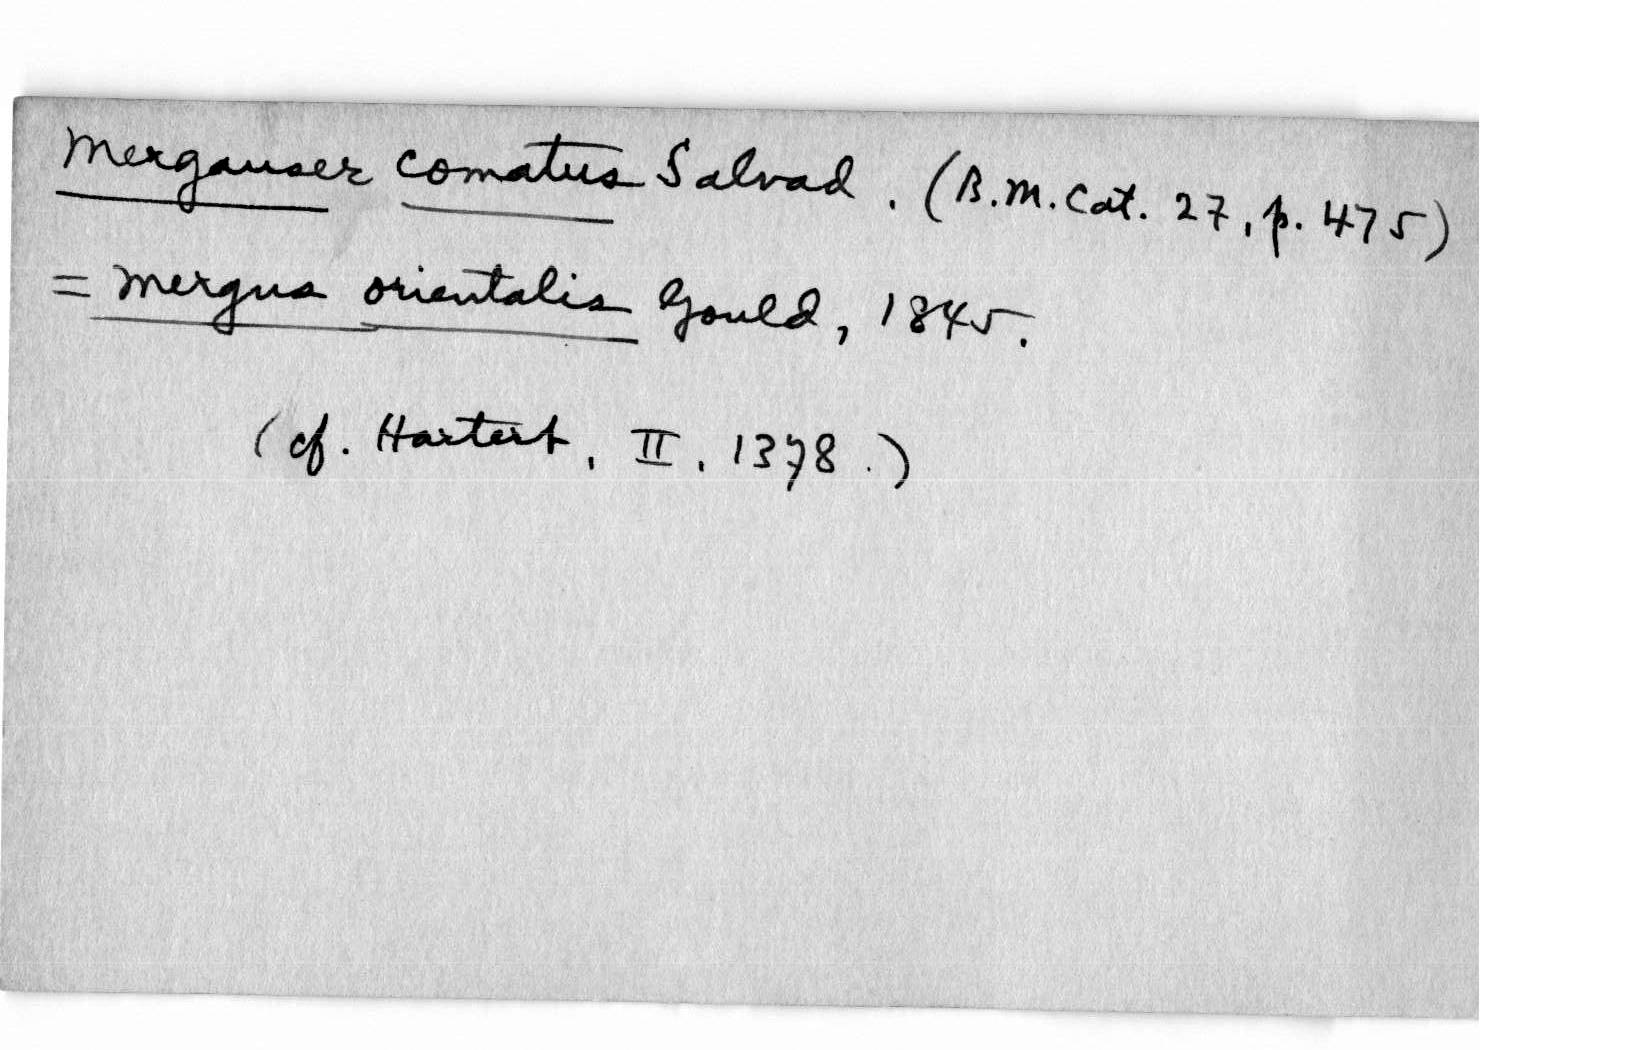 Merganser comatus Salvad. (B.M. Cat. 27, p. 475)
= Mergus orientalis Gould, 1845.
(cf. Hartert, II, 1378.)